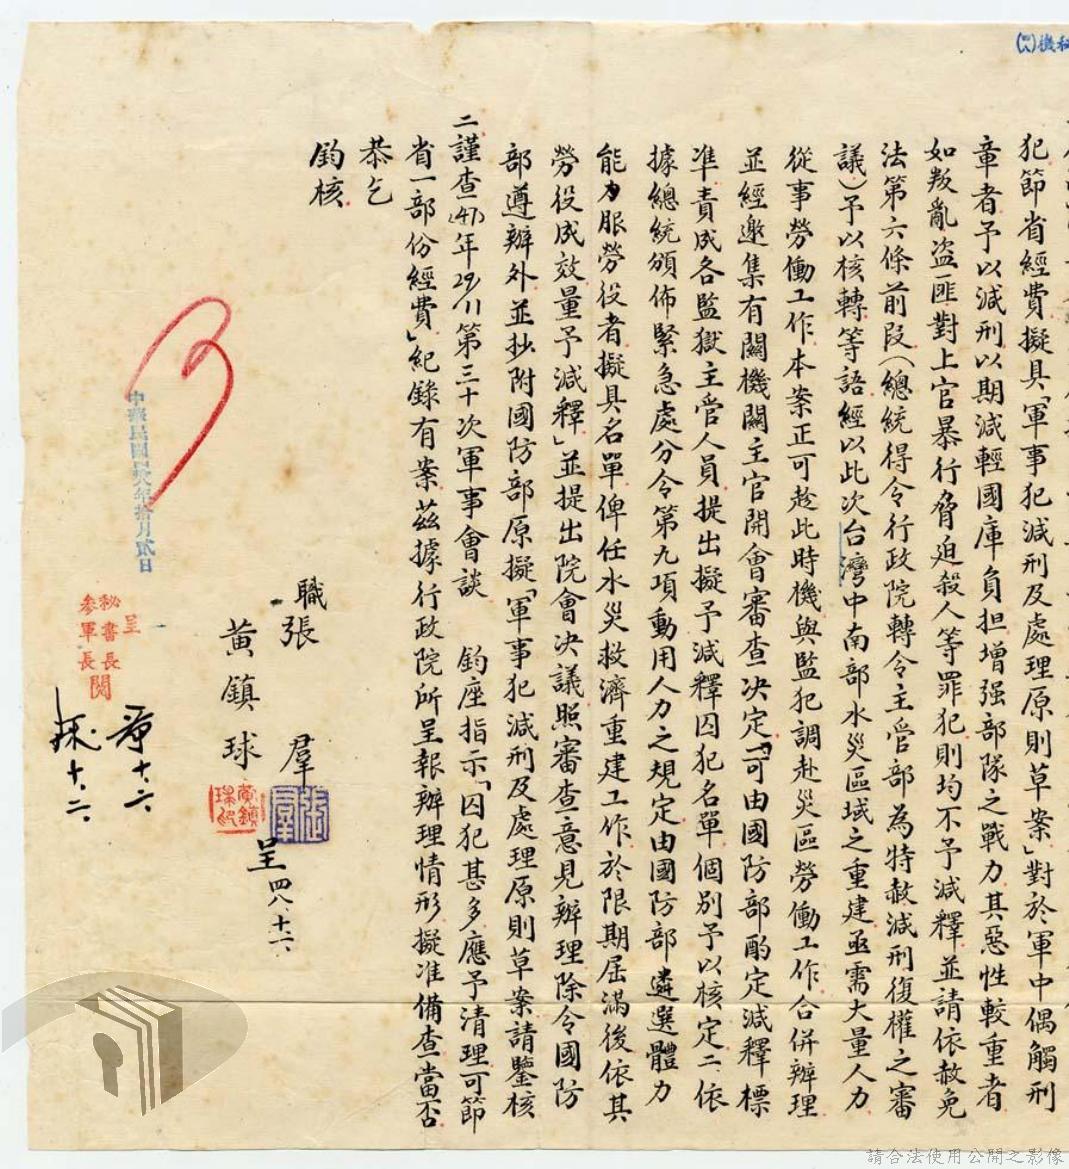 機(四八)
犯節省經費擬具「軍事犯減刑及處理原則草案」對於軍中偶觸刑
章者予以減刑以期減輕國庫負担增强部隊之戰力其惡性較重者
如叛亂盜匪對上官暴行脅迫殺人等罪犯則均不予減釋並請依赦免
法第六條前段(總統得令行政院轉令主管部為特赦減刑復權之審
議)予以核轉等語經以此次台灣中南部水災區域之重建亟需大量人力
從事勞働工作本案正可趁此時機與監犯調赴災區勞働工作合併辦理
並經邀集有關機關主官開會審查決定「一可由國防部酌定減釋標
準責成各監獄主管人員提出擬予減釋囚犯名單個別予以核定二、依
據總統頒佈緊急處分令第九項動用人力之規定由國防部遴選體力
能力服勞役者擬具名單俾任水災救濟重建工作於限期屆滿後依其
勞役成效量予減釋」並提出院會決議照審查意見辦理除令國防
部遵辦外並抄附國防部原擬「軍事犯減刑及處理原則草案請鑒核
二謹查(47)年29/11第三十次軍事會談 鈞座指示「囚犯甚多應予清理可節
省一部份經費」紀錄有案茲據行政院所呈報辦理情形擬准備查當否
恭乞
鈞核
職張 羣
黃鎮球
張羣
黃鎮球印
呈 四八、十、一、
中華民國四八年拾月貳日
呈
秘書長
參軍長閱
十、二、
十、二、
請合法使用公開之影像